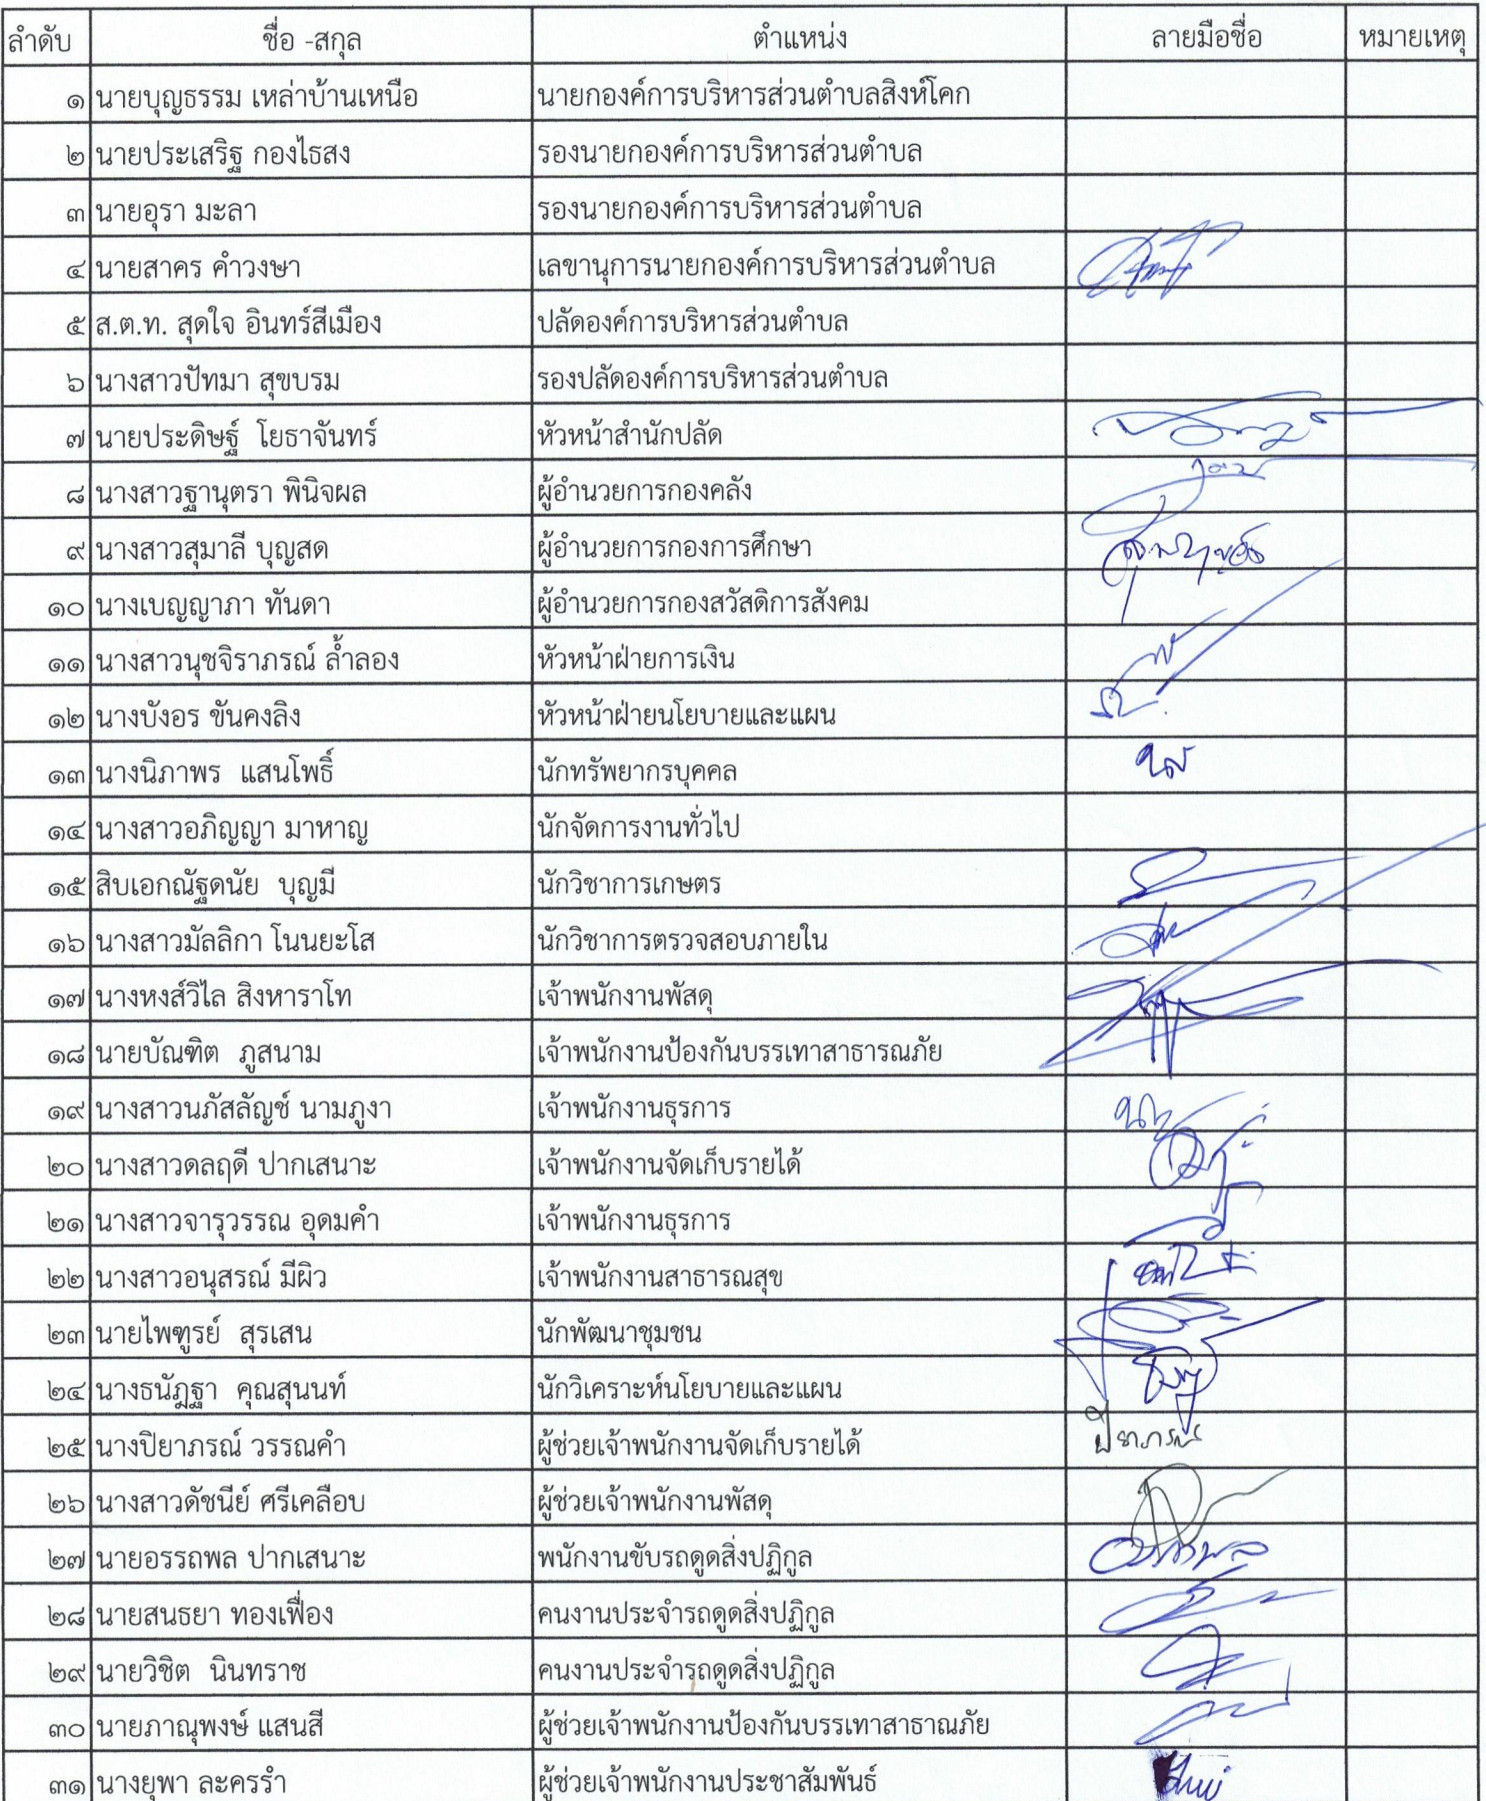 ลำดับ ชื่อ -สกุล ตำแหน่ง ลายมือชื่อ หมายเหตุ
๑ นายบุญธรรม เหล่าบ้านเหนือ นายกองค์การบริหารส่วนตำบลสิงห์โคก
๒ นายประเสริฐ กองไธสง รองนายกองค์การบริหารส่วนตำบล
๓ นายอุรา มะลา รองนายกองค์การบริหารส่วนตำบล
๔ นายสาคร คำวงษา เลขานุการนายกองค์การบริหารส่วนตำบล
๕ ส.ต.ท. สุดใจ อินทร์สีเมือง ปลัดองค์การบริหารส่วนตำบล
๖ นางสาวปัทมา สุขบรม รองปลัดองค์การบริหารส่วนตำบล
๗ นายประดิษฐ์ โยธาจันทร์ หัวหน้าสำนักปลัด
๘ นางสาวฐานุตรา พินิจผล ผู้อำนวยการกองคลัง
๙ นางสาวสุมาลี บุญสด ผู้อำนวยการกองการศึกษา
๑๐ นางเบญญาภา ทันดา ผู้อำนวยการกองสวัสดิการสังคม
๑๑ นางสาวนุชจิราภรณ์ ล้ำลอง หัวหน้าฝ่ายการเงิน
๑๒ นางบังอร ขันคงลิง หัวหน้าฝ่ายนโยบายและแผน
๑๓ นางนิภาพร แสนโพธิ์ นักทรัพยากรบุคคล
๑๔ นางสาวอภิญญา มาหาญ นักจัดการงานทั่วไป
๑๕ สิบเอกณัฐดนัย บุญมี นักวิชาการเกษตร
๑๖ นางสาวมัลลิกา โนนยะโส นักวิชาการตรวจสอบภายใน
๑๗ นางหงส์วิไล สิงหาราโท เจ้าพนักงานพัสดุ
๑๘ นายบัณฑิต ภูสนาม เจ้าพนักงานป้องกันบรรเทาสาธารณภัย
๑๙ นางสาวนภัสลัญช์ นามภูงา เจ้าพนักงานธุรการ
๒๐ นางสาวดลฤดี ปากเสนาะ เจ้าพนักงานจัดเก็บรายได้
๒๑ นางสาวจารุวรรณ อุดมคำ เจ้าพนักงานธุรการ
๒๒ นางสาวอนุสรณ์ มีผิว เจ้าพนักงานสาธารณสุข
๒๓ นายไพฑูรย์ สุรเสน นักพัฒนาชุมชน
๒๔ นางธนัฎฐา คุณสุนนท์ นักวิเคราะห์นโยบายและแผน
๒๕ นางปิยาภรณ์ วรรณคำ ผู้ช่วยเจ้าพนักงานจัดเก็บรายได้ ปิยาภรณ์
๒๖ นางสาวดัชนีย์ ศรีเคลือบ ผู้ช่วยเจ้าพนักงานพัสดุ
๒๗ นายอรรถพล ปากเสนาะ พนักงานขับรถดูดสิ่งปฏิกูล อรรถพล
๒๘ นายสนธยา ทองเฟื่อง คนงานประจำรถดูดสิ่งปฏิกูล
๒๙ นายวิชิต นินทราช คนงานประจำรถดูดสิ่งปฏิกูล
๓๐ นายภาณุพงษ์ แสนสี ผู้ช่วยเจ้าพนักงานป้องกันบรรเทาสาธาณภัย
๓๑ นางยุพา ละครรำ ผู้ช่วยเจ้าพนักงานประชาสัมพันธ์